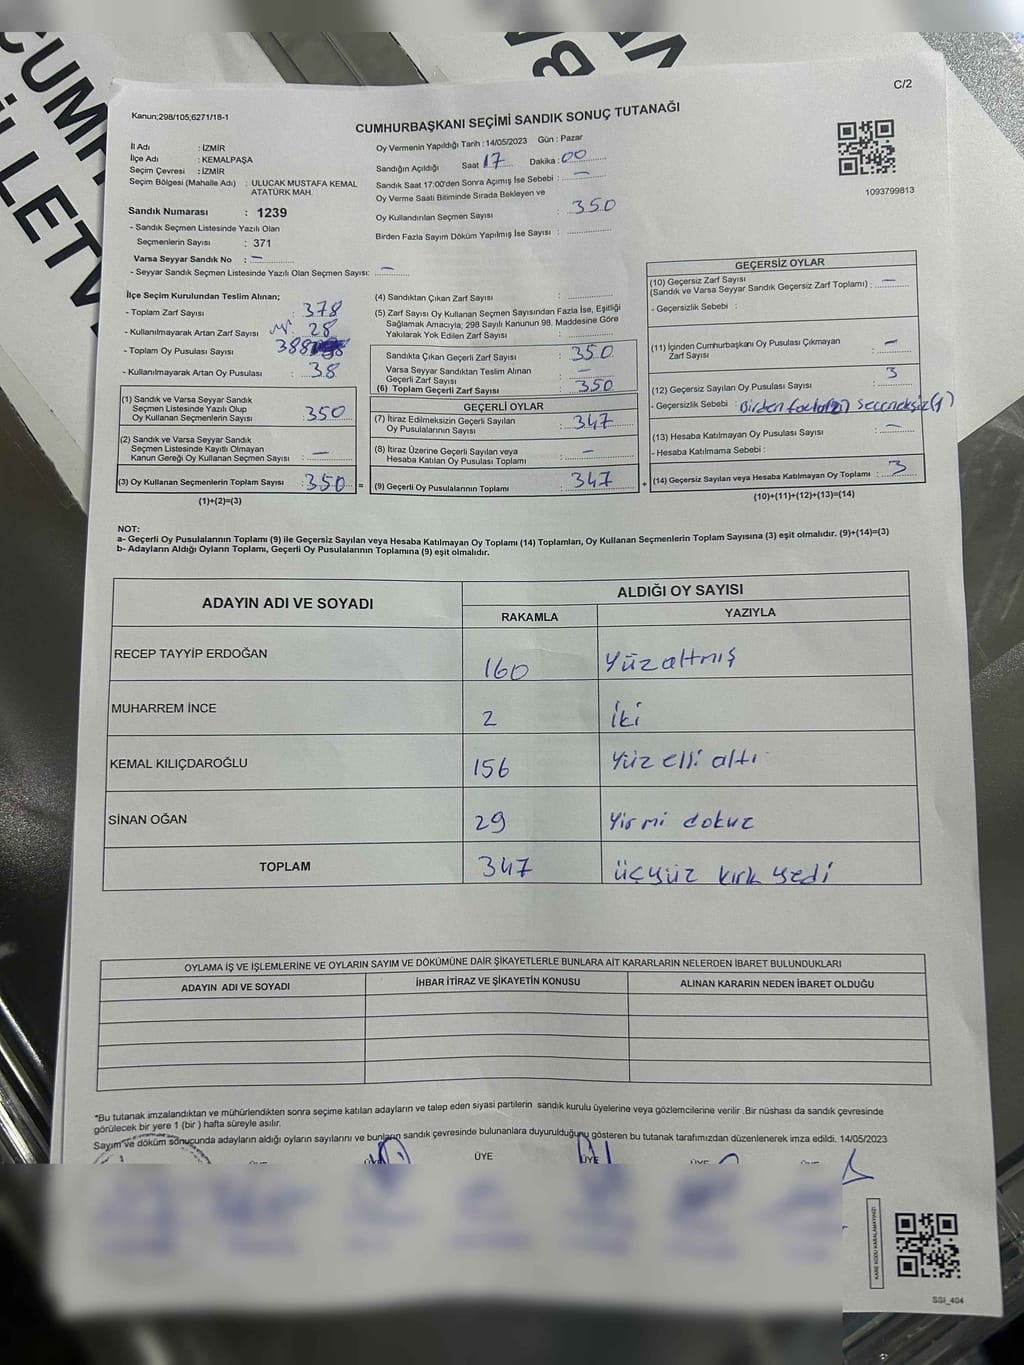 C/2
Kanun;298/105,6271/18-1
CUMHURBAŞKANI SEÇİMİ SANDIK SONUÇ TUTANAĞI
İl Adı : İZMİR
İlçe Adı : KEMALPAŞA
Seçim Çevresi : İZMİR
Seçim Bölgesi (Mahalle Adı) : ULUCAK MUSTAFA KEMAL
ATATÜRK MAH.
Sandık Numarası : 1239
- Sandık Seçmen Listesinde Yazılı Olan
Seçmenlerin Sayısı : 371
Varsa Seyyar Sandık No : —
- Seyyar Sandık Seçmen Listesinde Yazılı Olan Seçmen Sayısı: —
Oy Vermenin Yapıldığı Tarih : 14/05/2023 Gün : Pazar
Sandığın Açıldığı Saat : 17 Dakika : 00
Sandık Saat 17:00'den Sonra Açımış İse Sebebi : —
Oy Verme Saati Bitiminde Sırada Bekleyen ve
Oy Kullandırılan Seçmen Sayısı : 350
Birden Fazla Sayım Döküm Yapılmış İse Sayısı :
1093799813
İlçe Seçim Kurulundan Teslim Alınan;
- Toplam Zarf Sayısı : 378
- Kullanılmayarak Artan Zarf Sayısı : 28
- Toplam Oy Pusulası Sayısı : 388
- Kullanılmayarak Artan Oy Pusulası : 38
(1) Sandık ve Varsa Seyyar Sandık
Seçmen Listesinde Yazılı Olup
Oy Kullanan Seçmenlerin Sayısı : 350
(2) Sandık ve Varsa Seyyar Sandık
Seçmen Listesinde Kayıtlı Olmayan
Kanun Gereği Oy Kullanan Seçmen Sayısı : —
(3) Oy Kullanan Seçmenlerin Toplam Sayısı : 350 =
(1)+(2)=(3)
(4) Sandıktan Çıkan Zarf Sayısı :
(5) Zarf Sayısı Oy Kullanan Seçmen Sayısından Fazla İse, Eşitliği
Sağlamak Amacıyla; 298 Sayılı Kanunun 98. Maddesine Göre
Yakılarak Yok Edilen Zarf Sayısı :
Sandıkta Çıkan Geçerli Zarf Sayısı : 350
Varsa Seyyar Sandıktan Teslim Alınan
Geçerli Zarf Sayısı : —
(6) Toplam Geçerli Zarf Sayısı : 350
GEÇERLİ OYLAR
(7) İtiraz Edilmeksizin Geçerli Sayılan
Oy Pusulalarının Sayısı : 347
(8) İtiraz Üzerine Geçerli Sayılan veya
Hesaba Katılan Oy Pusulası Toplamı : —
(9) Geçerli Oy Pusulalarının Toplamı : 347 +
GEÇERSİZ OYLAR
(10) Geçersiz Zarf Sayısı
(Sandık ve Varsa Seyyar Sandık Geçersiz Zarf Toplamı) : —
- Geçersizlik Sebebi :
(11) İçinden Cumhurbaşkanı Oy Pusulası Çıkmayan
Zarf Sayısı : —
(12) Geçersiz Sayılan Oy Pusulası Sayısı : 3
- Geçersizlik Sebebi : Birden seceneksiz(1)
(13) Hesaba Katılmayan Oy Pusulası Sayısı : —
- Hesaba Katılmama Sebebi :
(14) Geçersiz Sayılan veya Hesaba Katılmayan Oy Toplamı : 3
(10)+(11)+(12)+(13)=(14)
NOT:
a- Geçerli Oy Pusulalarının Toplamı (9) ile Geçersiz Sayılan veya Hesaba Katılmayan Oy Toplamı (14) Toplamları, Oy Kullanan Seçmenlerin Toplam Sayısına (3) eşit olmalıdır. (9)+(14)=(3)
b- Adayların Aldığı Oyların Toplamı, Geçerli Oy Pusulalarının Toplamına (9) eşit olmalıdır.
ADAYIN ADI VE SOYADI ALDIĞI OY SAYISI
RAKAMLA YAZIYLA
RECEP TAYYİP ERDOĞAN 160 Yüzaltmış
MUHARREM İNCE 2 İki
KEMAL KILIÇDAROĞLU 156 Yüz elli altı
SİNAN OĞAN 29 Yirmi dokuz
TOPLAM 347 üçyüz kırk yedi
OYLAMA İŞ VE İŞLEMLERİNE VE OYLARIN SAYIM VE DÖKÜMÜNE DAİR ŞİKAYETLERLE BUNLARA AİT KARARLARIN NELERDEN İBARET BULUNDUKLARI
ADAYIN ADI VE SOYADI İHBAR İTİRAZ VE ŞİKAYETİN KONUSU ALINAN KARARIN NEDEN İBARET OLDUĞU
*Bu tutanak imzalandıktan ve mühürlendikten sonra seçime katılan adayların ve talep eden siyasi partilerin sandık kurulu üyelerine veya gözlemcilerine verilir .Bir nüshası da sandık çevresinde
görülecek bir yere 1 (bir ) hafta süreyle asılır.
Sayım ve döküm sonucunda adayların aldığı oyların sayılarını ve bunların sandık çevresinde bulunanlara duyurulduğunu gösteren bu tutanak tarafımızdan düzenlenerek imza edildi. 14/05/2023
ÜYE ÜYE ÜYE
KARE KODU KARALAMAYINIZ!
SSI_404